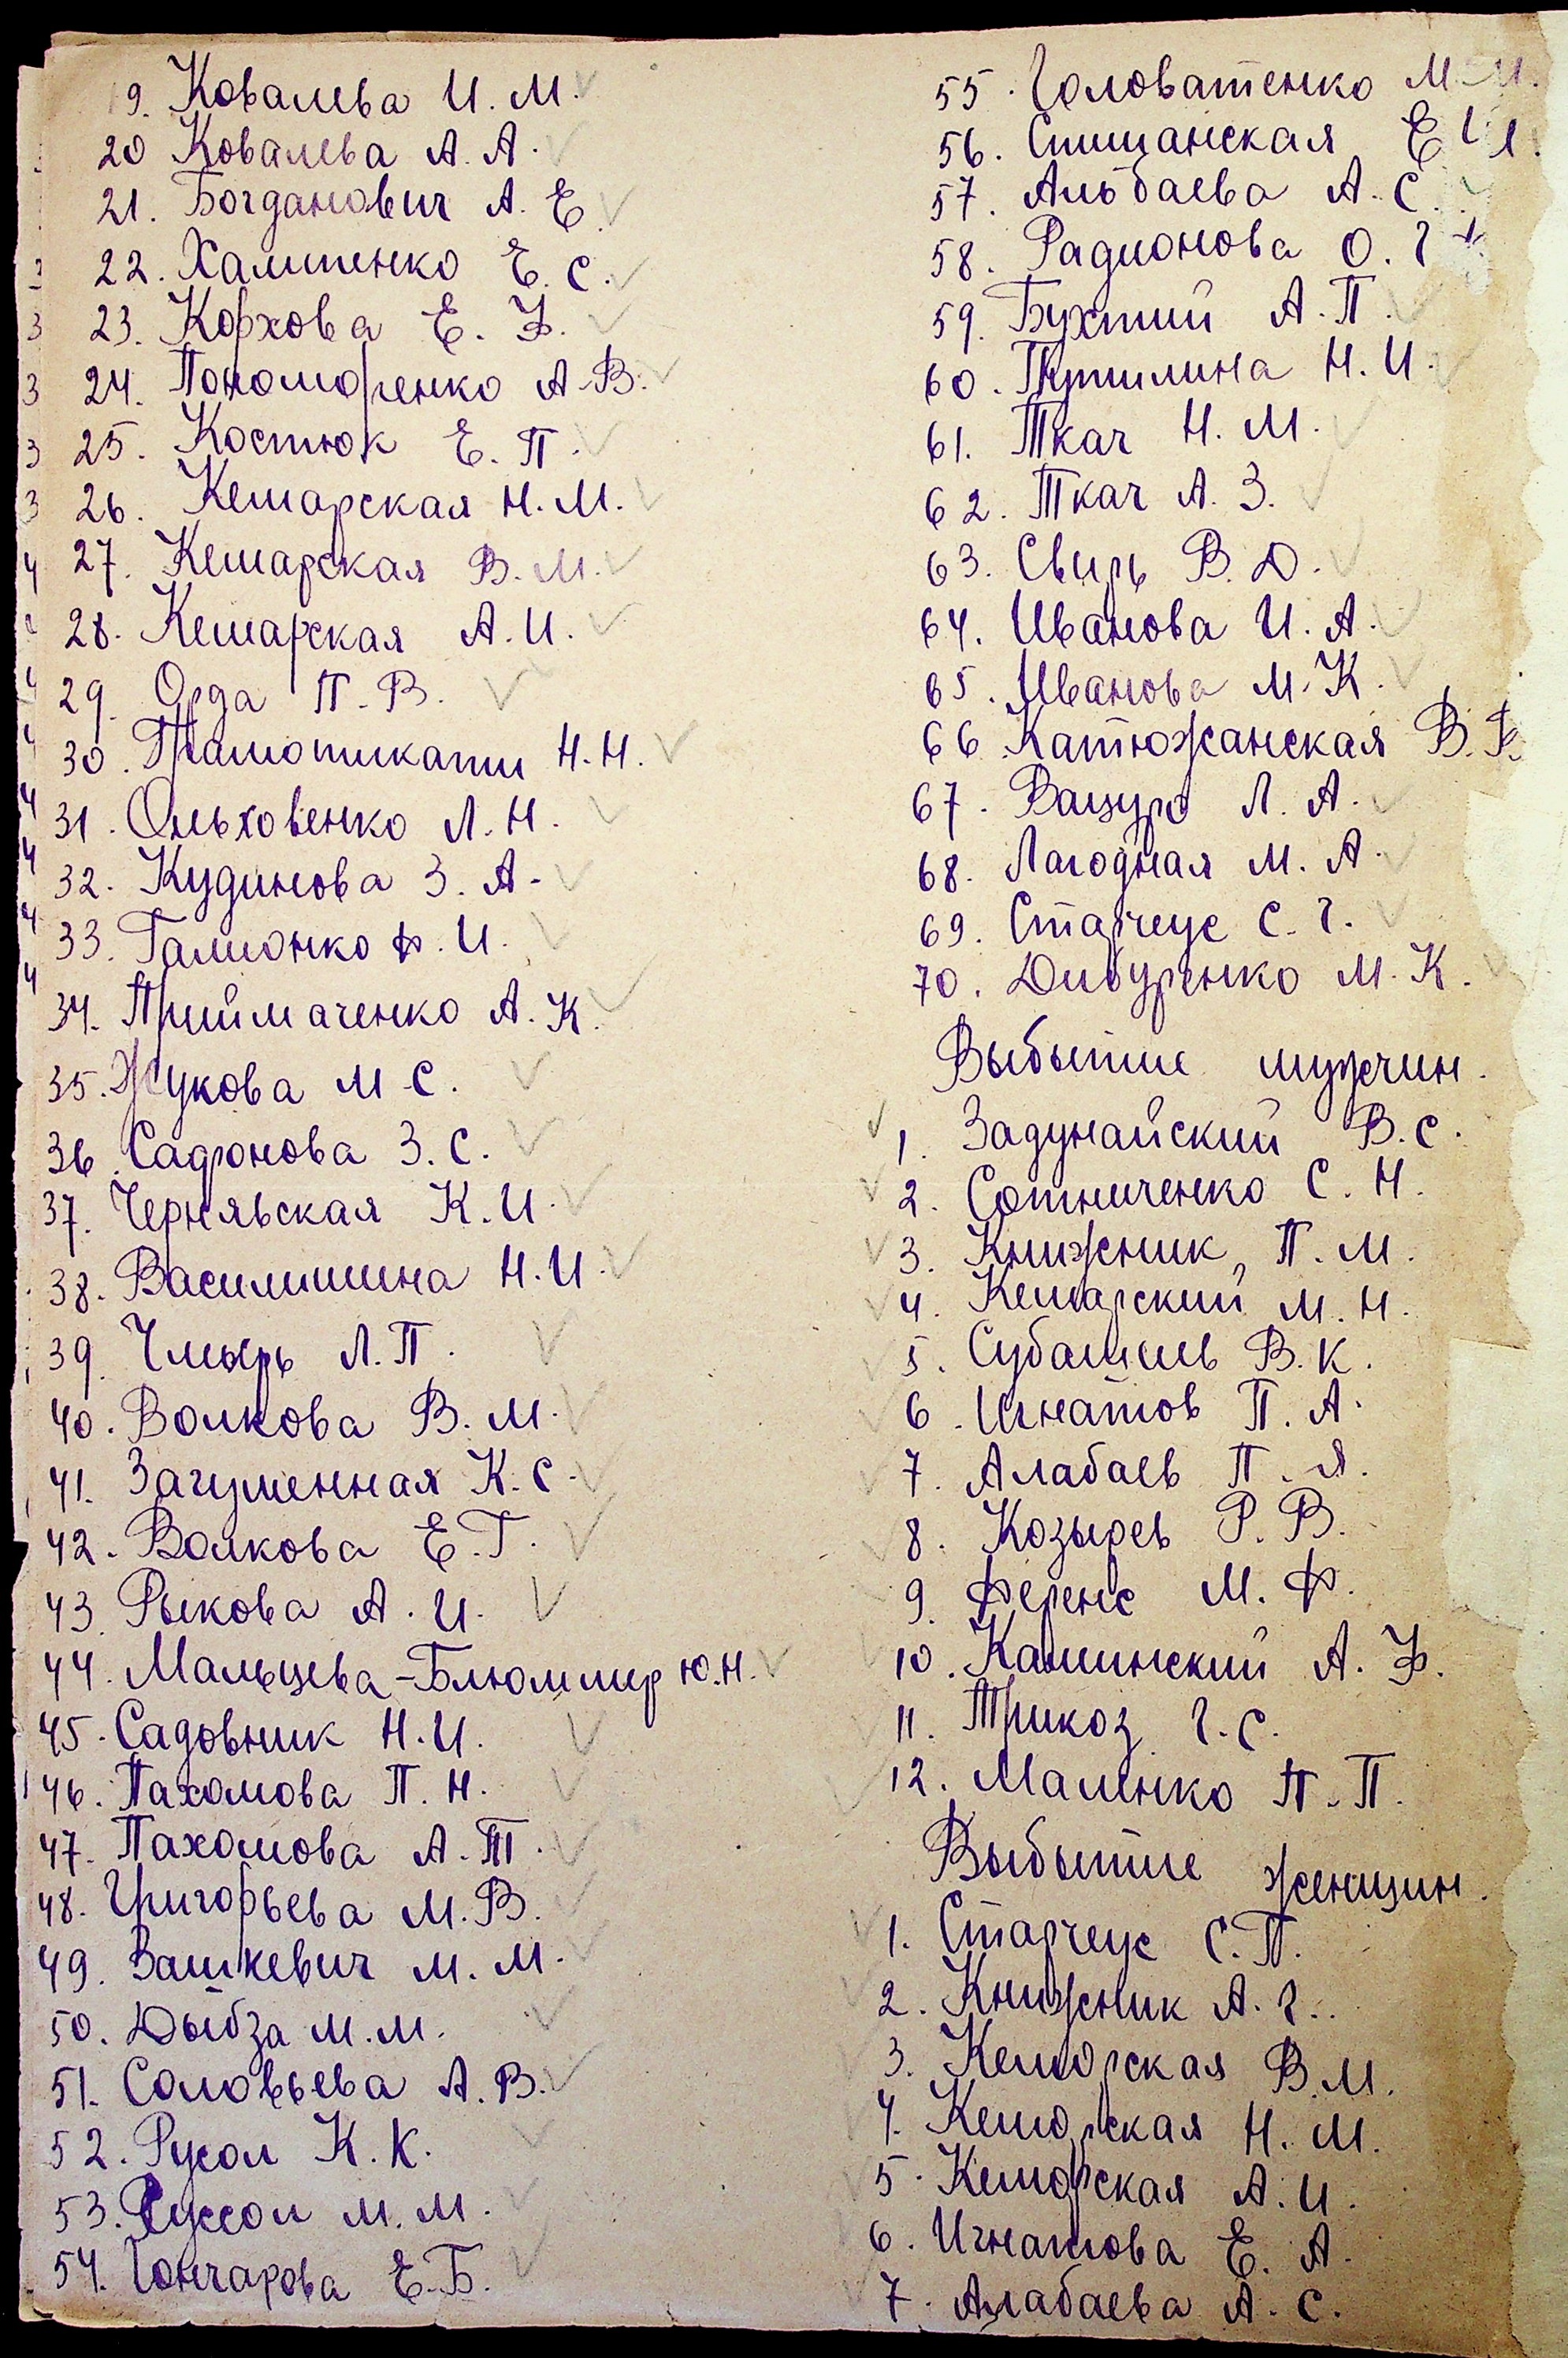 19. Ковалева И. М.
20 Ковалева А. А.
21. Богданович А. Е.
22. Халипенко Е. С.
23. Корхова Е. Ф.
24. Пономоренко А. В.
25. Костюк Е. П.
26. Кемарская Н. М.
27. Кемарская В. М.
28. Кемарская А. И.
29. Орда П. В.
30. Н. Н.
31. Ольховенко Л. Н.
32. Кудинова З. А.
33. Галионко Ф. И.
34. Приймаченко А. К.
35. Жукова М. С.
36. Сафронова З. С.
37. Чернявская К. И.
38. Василишина Н. И.
39. Чмырь Л. П.
40. Волкова В. М.
41. Загуменная К. С.
42. Волкова Е. Г.
43. Рыкова А. И.
44. Мальцева-Блюммер Ю. Н.
45. Садовник Н. И.
46. Пахомова П. Н.
47. Пахомова А. Т.
48. Григорьева М. В.
49. Вашкевич М. М.
50. Дыбза М. М.
51. Соловьева А. В.
52. Русол К. К.
53. Руссол М. М.
54. Гончарова Е. Б.
55. Головатенко М. И.
56. Е.
57. Альбаева А. С.
58. Радионова О. Г.
59. Бухтий А. П.
60. Путилина Н. И.
61. Ткач Н. М.
62. Ткач А. З.
63. Свирь В. Д.
64. Иванова И. А.
65. Иванова М. К.
66. Катюжанская В. Ф.
67. Вацуро Л. А.
68. Лагодная М. А.
69. Старчеус С. Г.
70. Дибуренко М. К.
Выбытие мужчин.
1. Задунайский В. С.
2. Сотниченко С. Н.
3. Книжник П. М.
4. Кемарский М. Н.
5. В. К.
6. Игнатов П. А.
7. Алабаев П. Я.
8. Козырев Р. В.
9. Ференс М. Ф.
10. Каминский А. Ф.
11. Трикоз Г. С.
12. Маленко П. П.
Выбытие женщин.
1. Старчеус С. П.
2. Книжник А. Г.
3. Кемарская В. М.
4. Кемарская Н. М.
5. Кемарская А. И.
6. Игнатова Е. А.
7. Алабаева А. С.